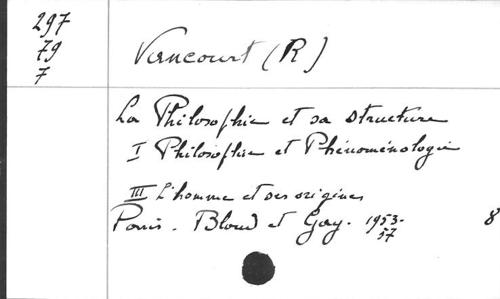 297
79
7
Vancourt (R)
La Philosophie et sa structure
I Philosophie et Phénoménologie
III L'homme et ses origines
Paris. Bloud et Gay. 1953-
57
8